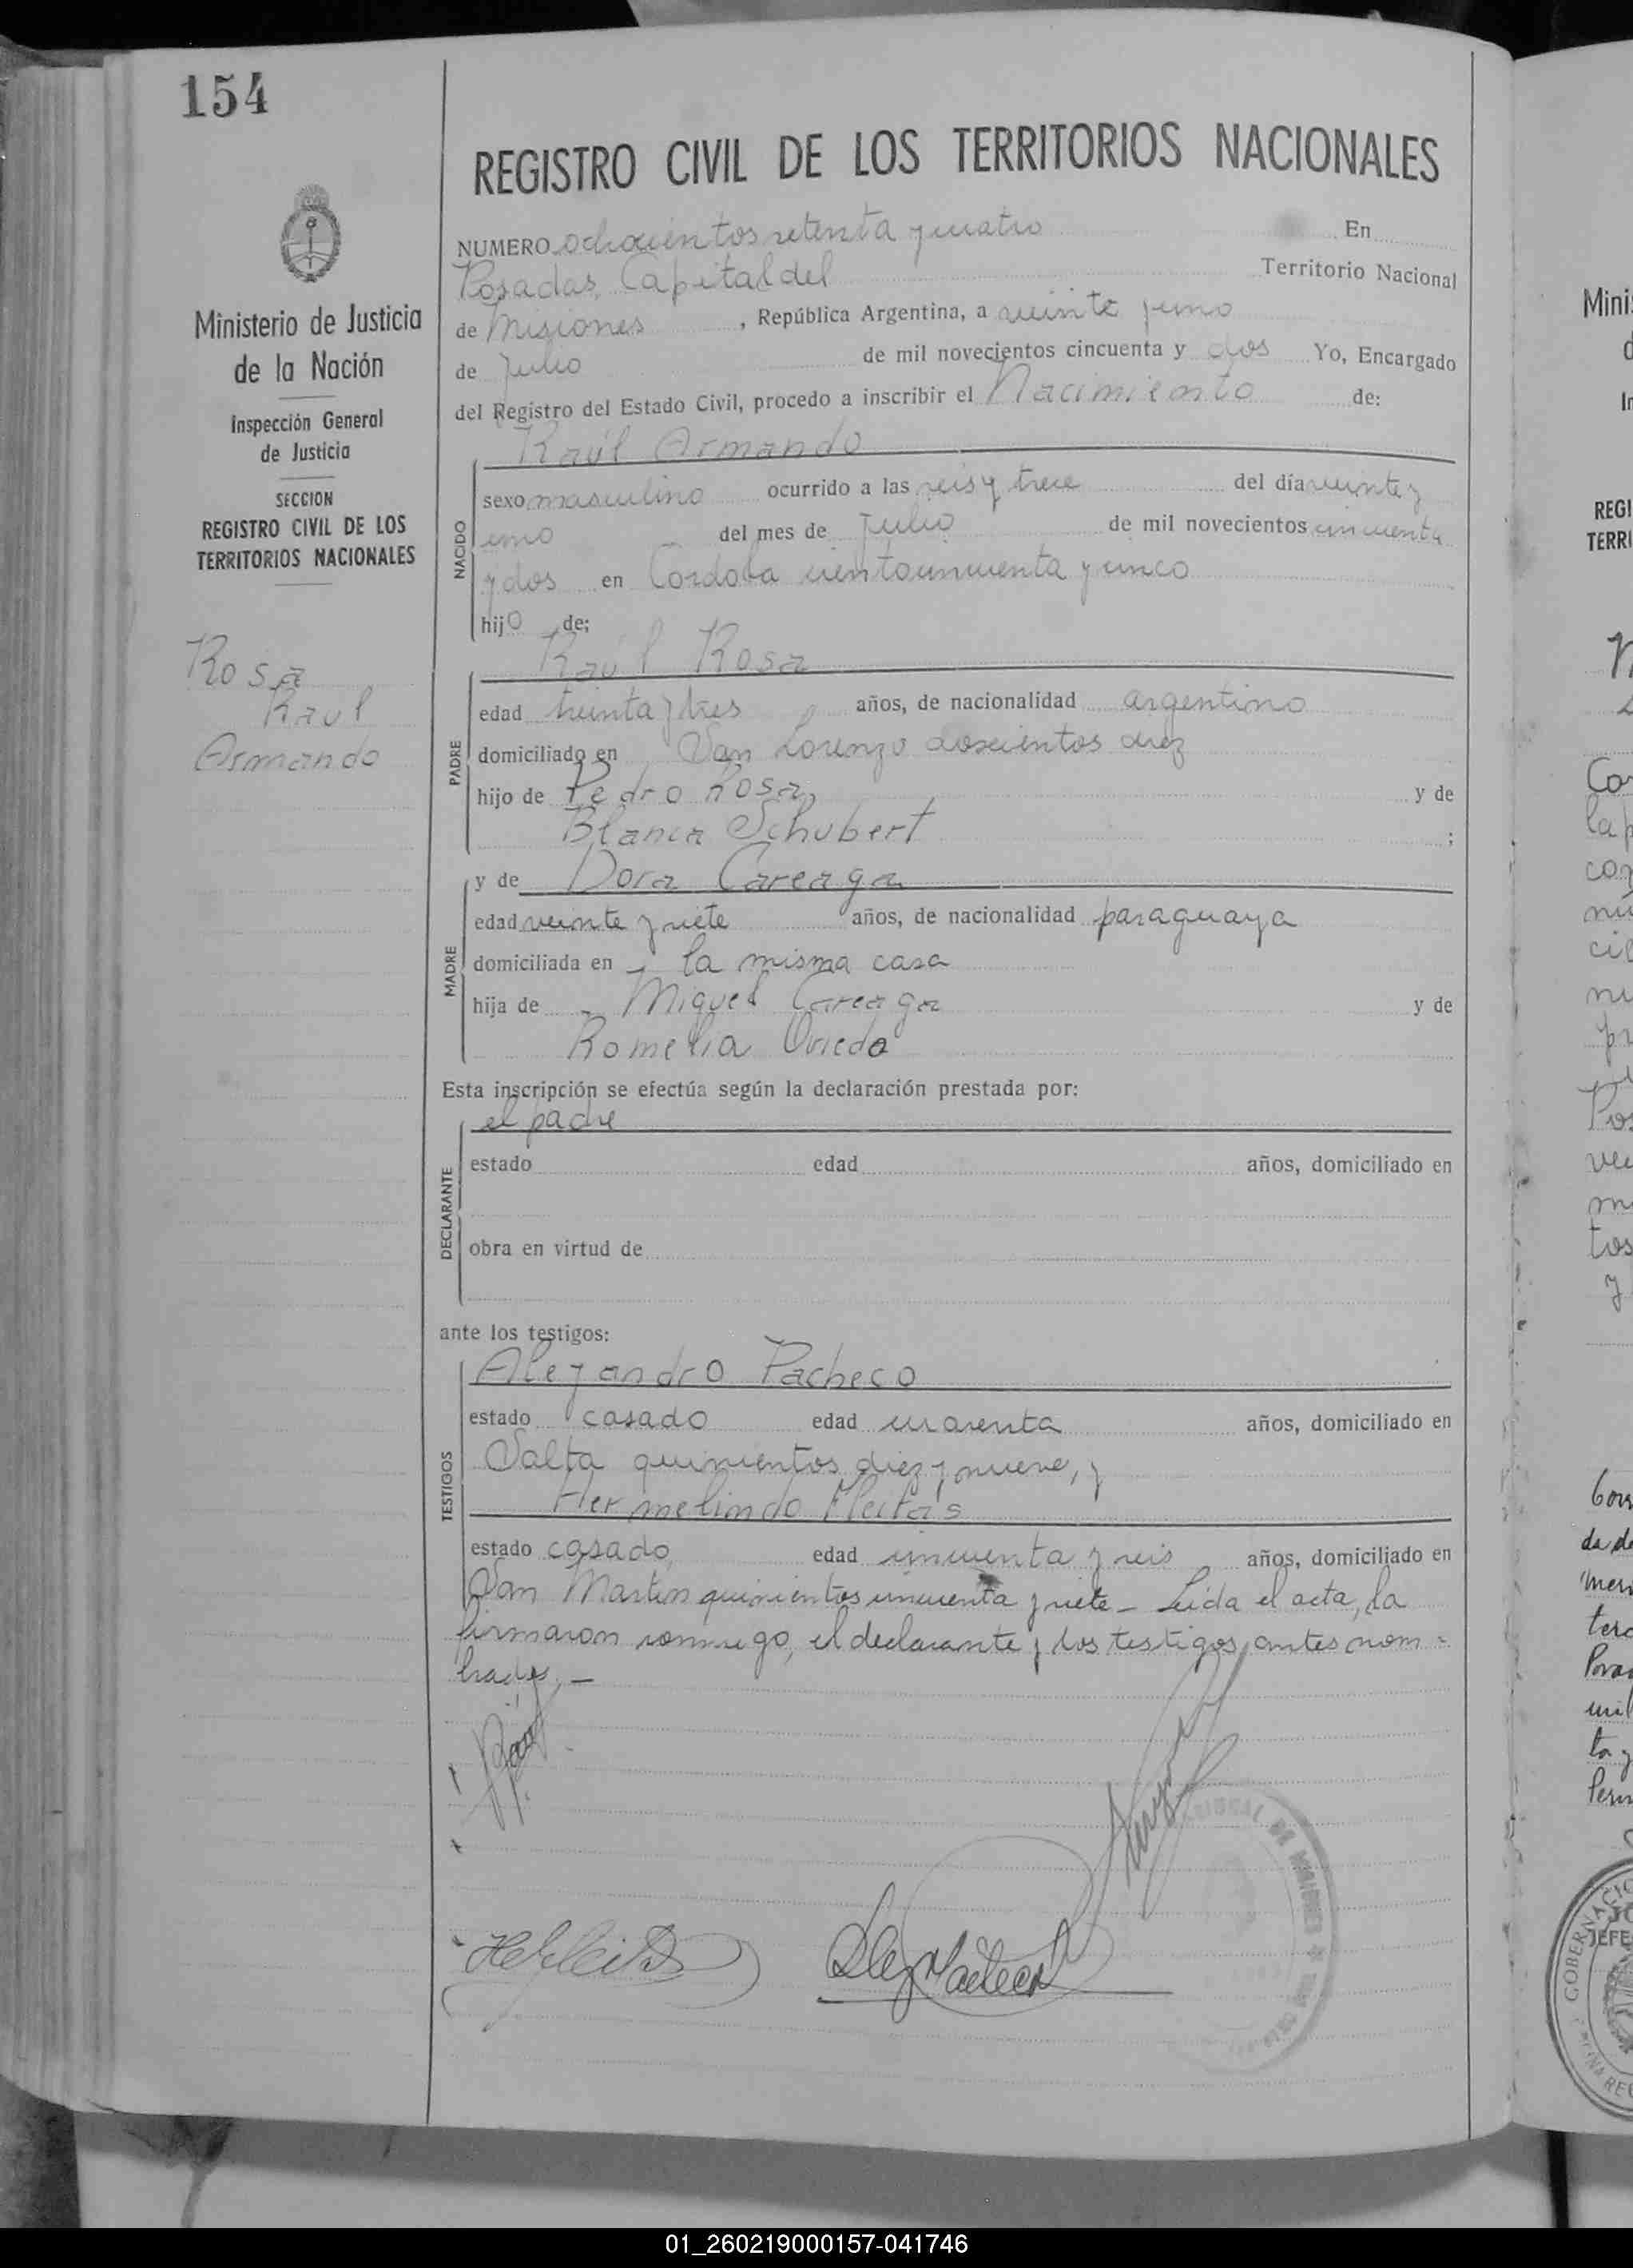 154
REGISTRO CIVIL DE LOS TERRITORIOS NACIONALES
Ministerio de Justicia
de la Nación
Inspección General
de Justicia
SECCION
REGISTRO CIVIL DE LOS
TERRITORIOS NACIONALES
Rosa
Raul
Armando
NUMERO ochocientos setenta y cuatro En
Posadas, Capital del Territorio Nacional
de Misiones, República Argentina, a veinte y uno
de Julio de mil novecientos cincuenta y dos Yo, Encargado
del Registro del Estado Civil, procedo a inscribir el Nacimiento de:
Raúl Armando
NACIDO
sexo masculino ocurrido a las seis y trece del día veinte y
uno del mes de Julio de mil novecientos cincuenta
y dos en Cordoba ciento cincuenta y cinco
hijo de:
Raúl Rosa
PADRE
edad treinta y tres años, de nacionalidad argentino
domiciliado en San Lorenzo doscientos diez
hijo de Pedro Rosa, y de
Blanca Schubert ;
y de Dora Careaga
MADRE
edad veinte y siete años, de nacionalidad paraguaya
domiciliada en la misma casa
hija de Miguel Careaga y de
Romelia Oviedo
Esta inscripción se efectúa según la declaración prestada por:
el padre
DECLARANTE
estado edad años, domiciliado en
obra en virtud de
ante los testigos:
Alejandro Pacheco
TESTIGOS
estado casado edad cuarenta años, domiciliado en
Salta quinientos diez y nueve, y
Hermelindo Fleitas
estado casado, edad cincuenta y seis, años, domiciliado en
San Martin quinientos cincuenta y siete - Leida el acta, la
firmaron conmigo, el declarante y los testigos antes nom-
brados. -
DE MISIONES
Mini
REGI
TERRI
GOBERNACIO
JEFE
01_260219000157-041746